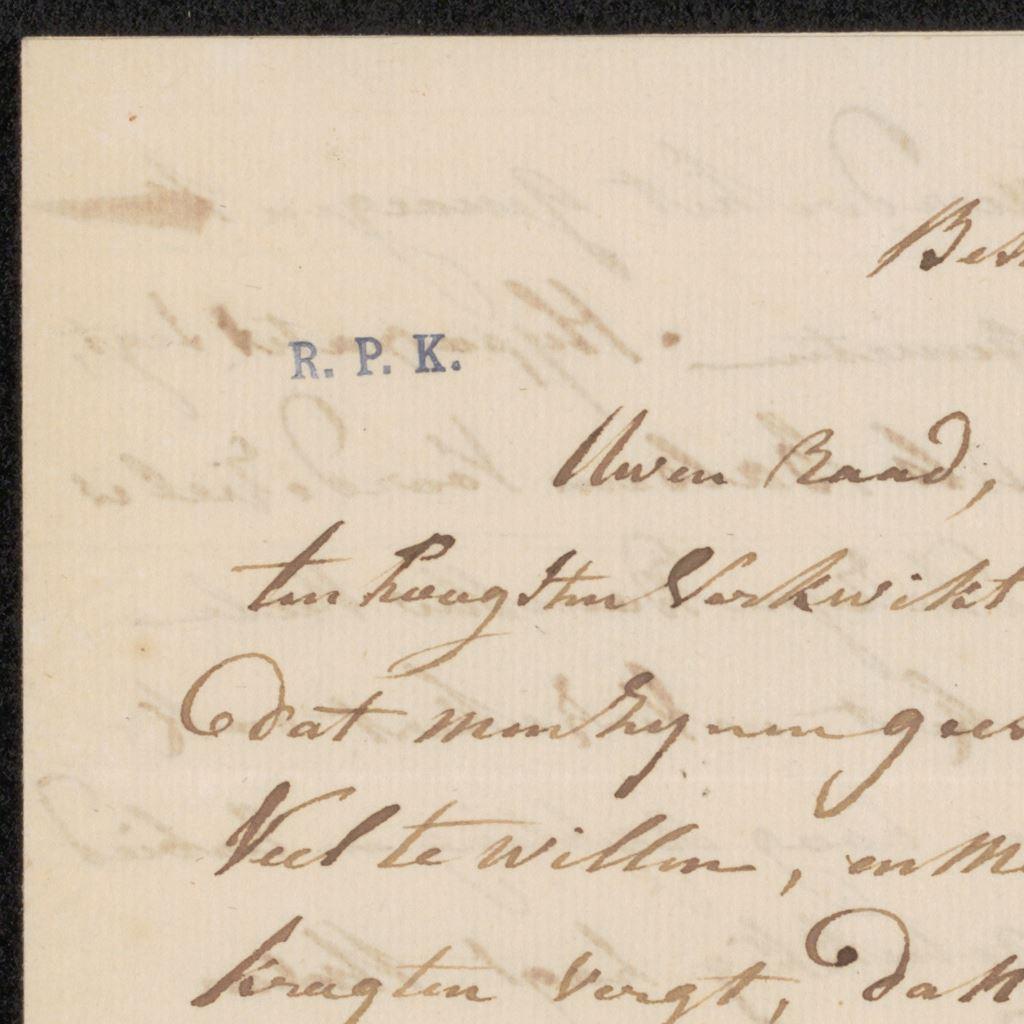 Bes
R. P. K.
Uwen Raad,
ten hoogsten Verkwikt
dat men hynen geev
Veel te willen, en me
kragten vergt, dat